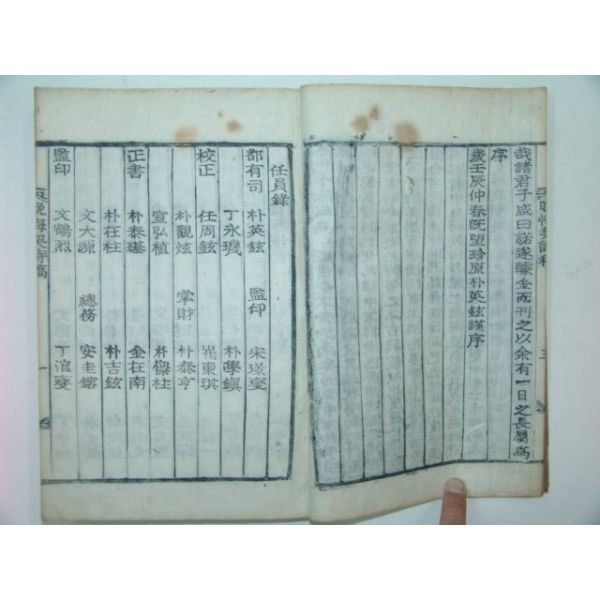 哉諸君子咸曰諾遂醵金而刊之以余有一日之長屬爲
序
歲壬辰仲春旣望珍原朴英鉉謹序
任員錄
都有司 朴英鉉 監印 宋璟燮
丁永璣 朴學鎭
校正 任周鉉 崔東琪
朴觀炫 掌財 朴泰亨
宣弘植 朴燦柱
正書 朴泰瑾 金在南
朴在柱 朴吉鉉
文大源 總務 安圭鎔
監印 文鶴烈 丁湆燮